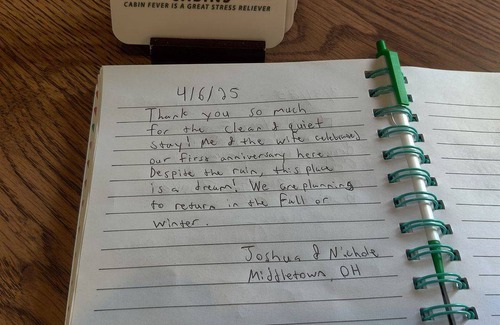 CABIN FEVER IS A GREAT STRESS RELIEVER
4/6/25
Thank you so much
for the clean & quiet
stay! Me & the wife celebrated
our first anniversary here.
Despite the rain, this place
is a dream! We are planning
to return in the Fall or
winter.
Joshua & Nichole
Middletown, OH